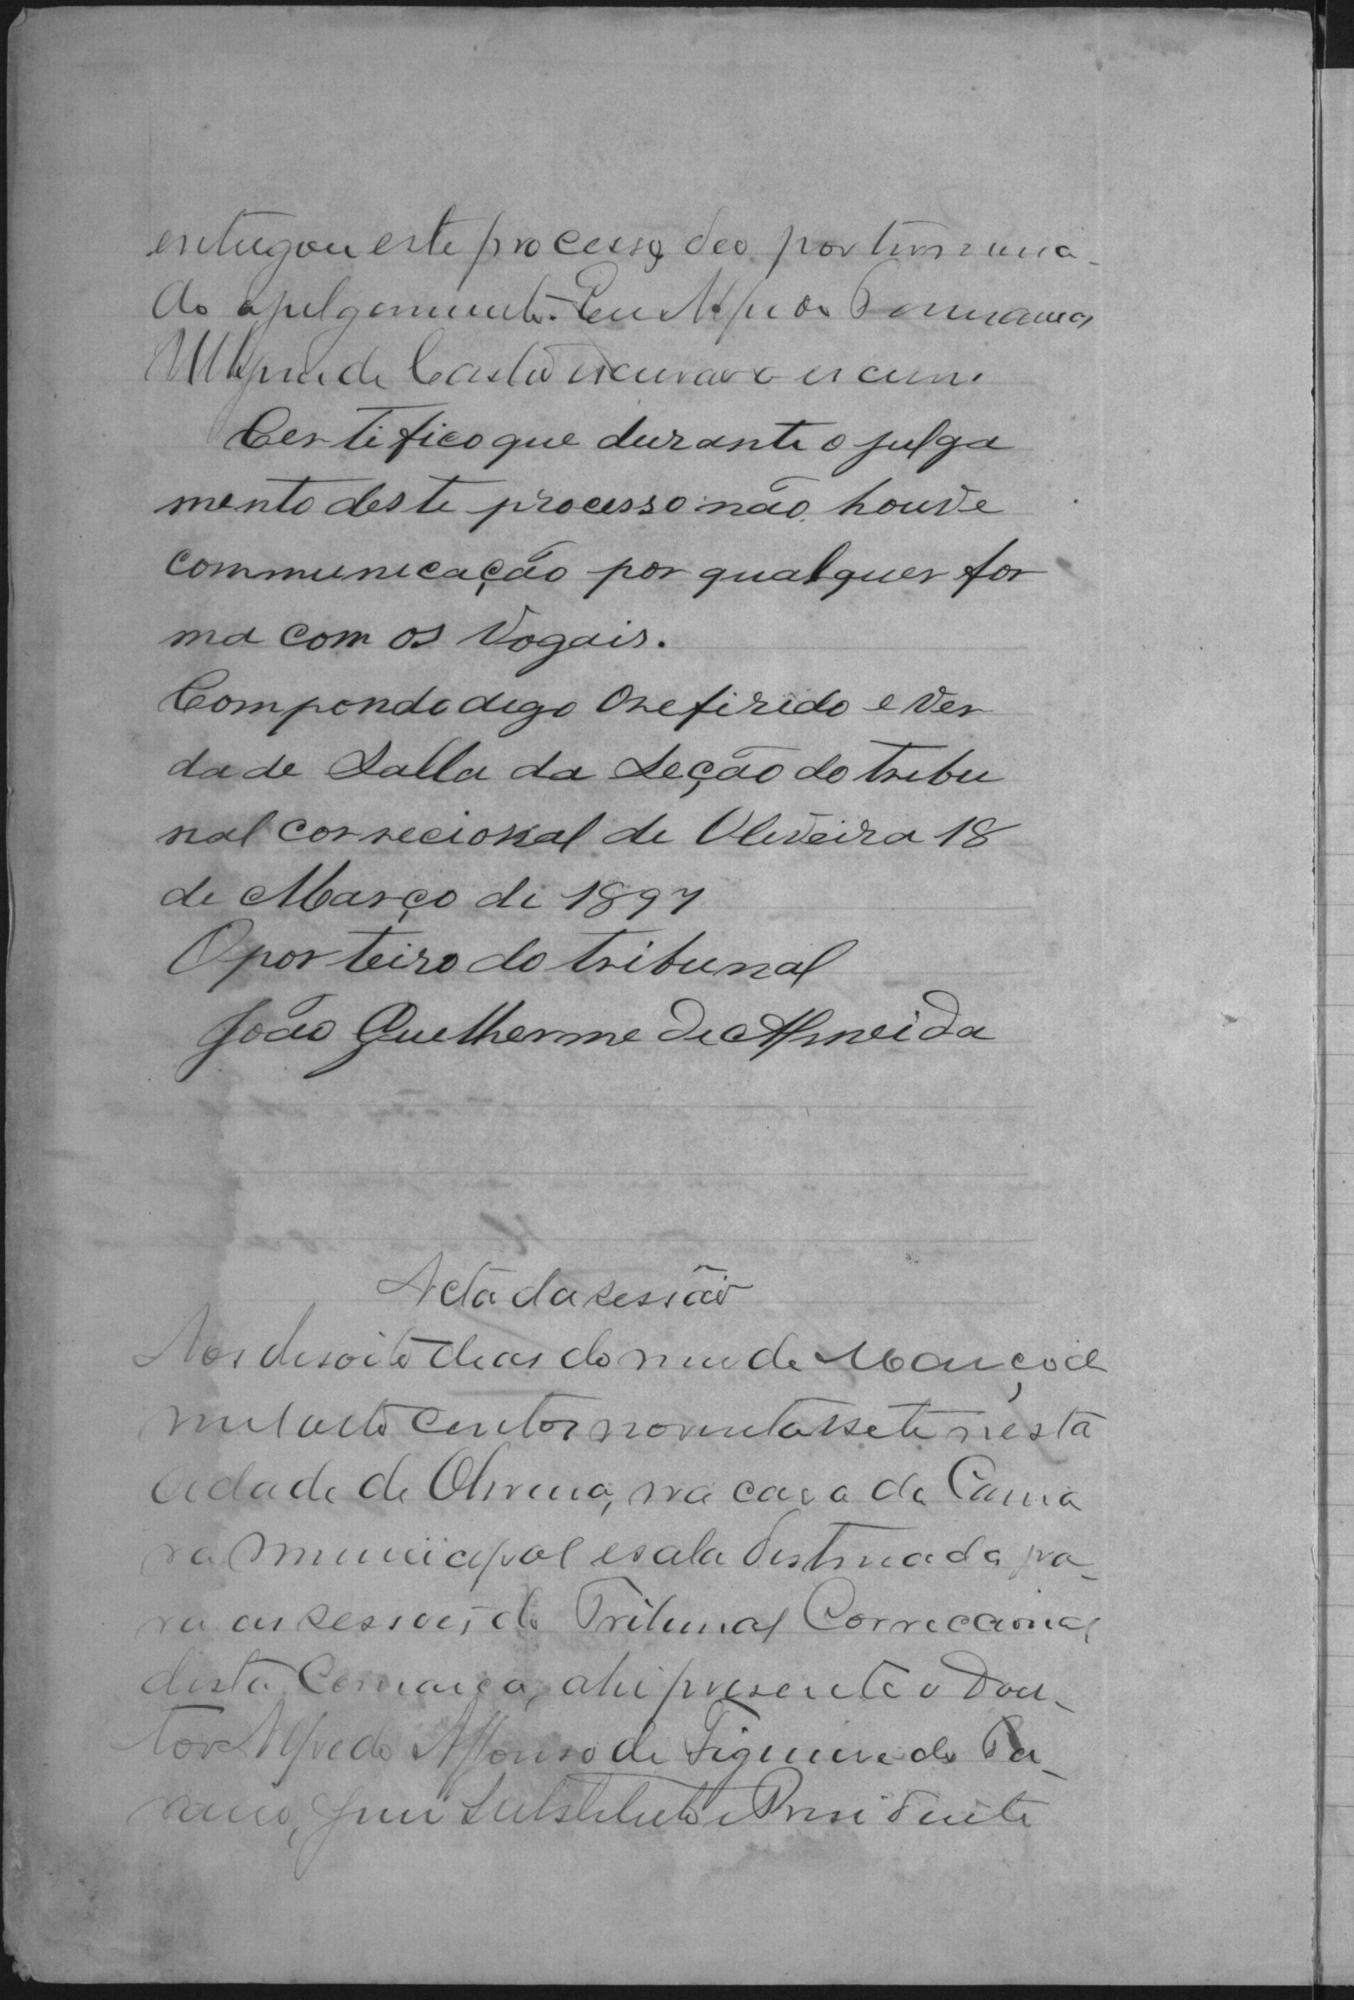 entregou este processo, deo por termina-
do o julgamento. Eu
de Castro escrivão o escrevi
Certifico que durante o julga
mento deste processo não houve
communicação por qualquer for
ma com os Vogais.
Compondo digo O refirido e ver
dade Salla da Seção do tribu
nal correcional de Oliveira 18
de Março de 1897
O porteiro do tribunal
João Guelherme de Almeida
Acta da sessão
Aos desoito dias do mez de Março de
mil oito centos noventa e sete nesta
cidade de Oliveira, na casa da Cama
ra Municipal e sala destinada pa-
ra as sessões do Tribunal Correccional
desta Comarca, ahi presente o Dou-
tor Alfredo Affonso de Figueiredo Pa-
raiso, Juiz Substituto e Presidente